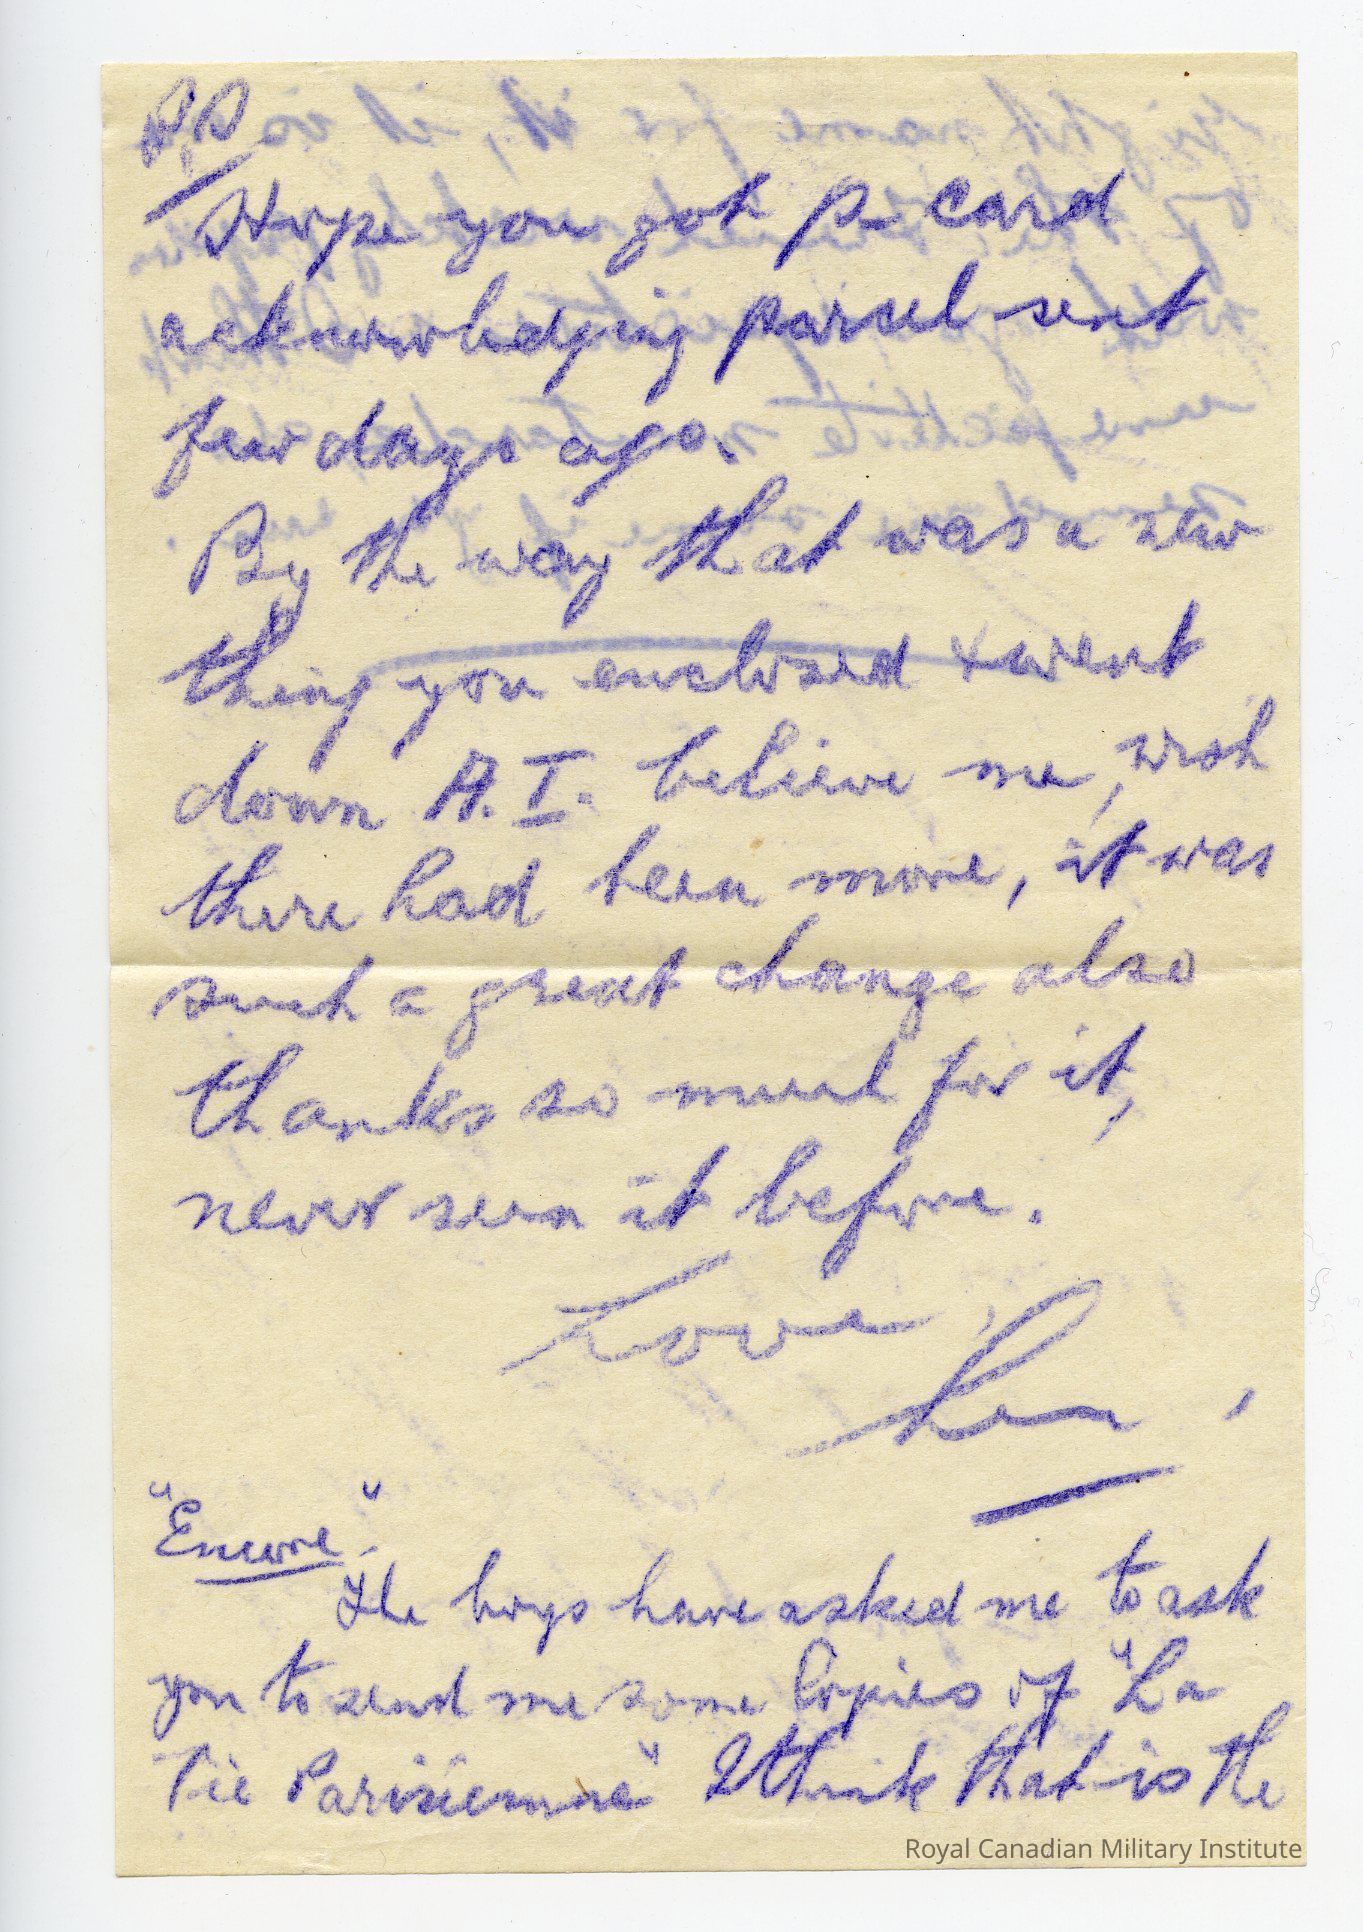 P.S
Hope you got p. card
acknowledging parcel sent
few days ago.
By the way that was a new
thing you enclosed & went
down A.I. believe me, wish
there had been more, it was
such a great change also
thanks so much for it,
never seen it before.
Love,
Len,
"Encore".
The boys have asked me to ask
you to send me some Copies of "La
Vie Parisienne" I think that is the
Royal Canadian Military Institute